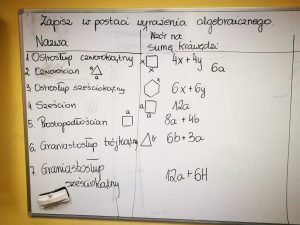 Zapisz w postaci wyrażenia algebraicznego.
Nazwa
Wzór na sumę krawędzi
1 Ostrosłup czworokątny x x 4x+4y
2 Czworościan a a 6a
3 Ostrosłup sześciokątny 6x+6y
4 Sześcian a 12a
5. Prostopadłościan a 8a+4b
6. Graniastosłup trójkątny 6b+3a
7 Graniastosłup sześciokątny 12a+6H